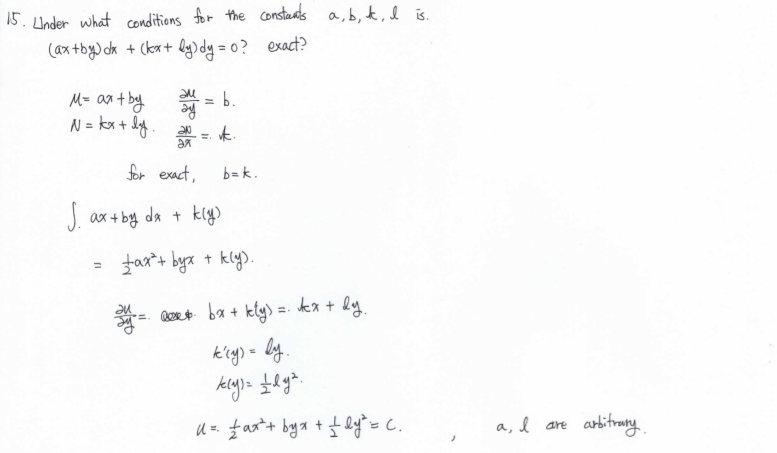 15. Under what conditions for the constants a, b, k, l is.
(ax+by)dx + (kx+ ly)dy = 0? exact?
M= ax+by ∂M/∂y = b.
N = kx+ly. ∂N/∂x =. k.
for exact, b=k.
∫. ax+by dx + k(y)
= 1/2 ax²+ byx + k(y).
∂u/∂y =. bx + k'(y) =. kx + ly.
k'(y) = ly.
k(y)= 1/2 ly².
u =. 1/2 ax²+ byx + 1/2 ly² = C. , a, l are arbitrary.